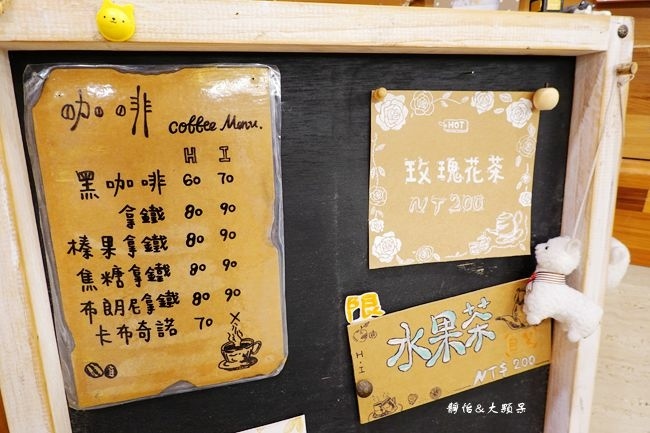 咖啡
coffee Menu.
H I
黑咖啡 60 70
拿鐵 80 90
榛果拿鐵 80 90
焦糖拿鐵 80 90
布朗尼拿鐵 80 90
卡布奇諾 70 X
HOT
玫瑰花茶
NT 200
限
水果茶
H.I
NT$ 200
靜怡&大顆呆